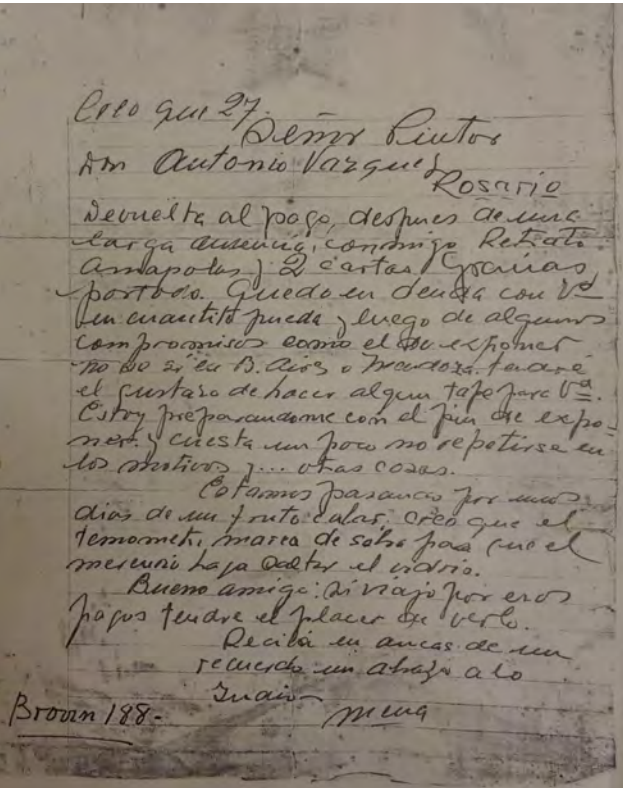 Creo que 27.
Señor Pintor
Don Antonio Vazquez
Rosario
Devuelta al pago, despues de una
larga ausencia, conmigo Retrato
Amapolas y 2 cartas. Gracias,
por todo. Quedo en deuda con Vd
en cuantito pueda y luego de algunos
compromisos como el de exponer
no se si en B. Aires o Mendoza tendré
el gustazo de hacer algun tape para Vd.
Estoy preparandome con el fin de expo-
ner. y cuesta un poco no repetirse en
los motivos y... otras cosas.
Estamos pasando por unos
dias de un bruto calor, creo que el
marca de sobra para que el
mercurio haga saltar el vidrio.
Bueno amigo: si viajo por esos
pagos tendre el placer de verlo.
Reciba en ancas de un
recuerdo un abrazo a lo
Indio-
Mena
Brown 188-